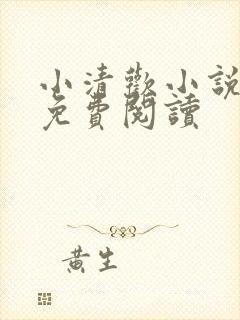 小清歡小說
免費閱讀
黃生